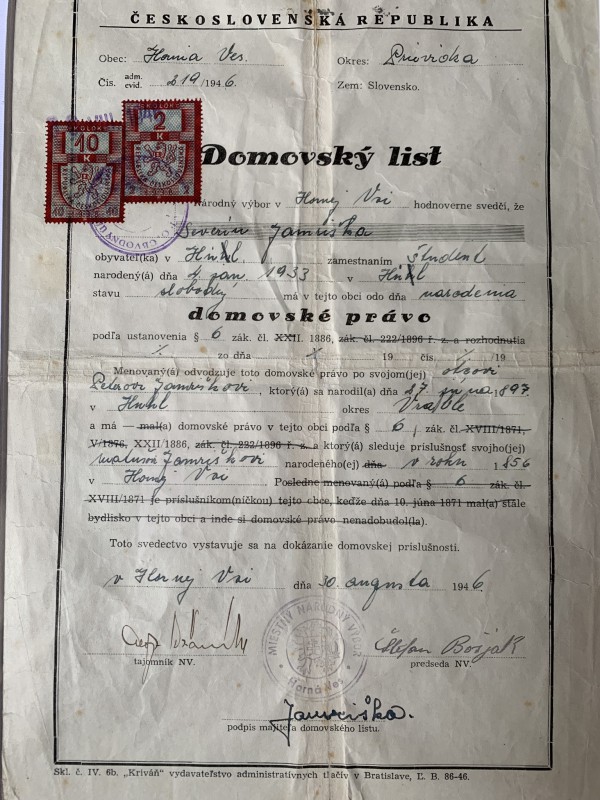 ČESKOSLOVENSKÁ REPUBLIKA
Obec: Horná Ves. Okres: Prievidza
Čís. adm. evid. 219/1946. Zem: Slovensko.
KOLOK KOLOK
10 K 2 K
Domovský list
Národný výbor v Hornej Vsi hodnoverne svedčí, že
Severín Jamriška
obyvateľ(ka) v zamestnaním študent
narodený(á) dňa jan. 1933 v
stavu slobodný má v tejto obci odo dňa narodenia
domovské právo
podľa ustanovenia § 6 zák. čl. XXII. 1886, zák. čl. 222/1896 ř. z. a rozhodnutia
zo dňa 19 čís. /19
Menovaný(á) odvodzuje toto domovské právo po svojom(jej) otcovi
Petrovi Jamriškovi, ktorý(á) sa narodil(a) dňa 27. júna 1897.
v okres Vráble
a má — mal(a) domovské právo v tejto obci podľa § 6, zák. čl. XVIII/1871,
V/1876, XXII/1886, zák. čl. 222/1896 ř. z. a ktorý(á) sleduje príslušnosť svojho(jej)
Jamriškovi narodeného(ej) dňa v roku 1856
v Hornej Vsi Posledne menovaný(á) podľa § 6 zák. čl.
XVIII/1871 je príslušníkom(níčkou) tejto obce, keďže dňa 10. júna 1871 mal(a) stále
bydlisko v tejto obci a inde si domovské právo nenadobudol(la).
Toto svedectvo vystavuje sa na dokázanie domovskej príslušnosti.
v Hornej Vsi dňa 30. augusta 1946.
MIESTNY NÁRODNÝ VÝBOR
Horná Ves
Štefan Bošjak
tajomník NV. predseda NV.
Jamriška.
podpis majiteľa domovského listu.
Skl. č. IV. 6b. „Kriváň" vydavateľstvo administratívnych tlačív v Bratislave, Ľ. B. 86-46.